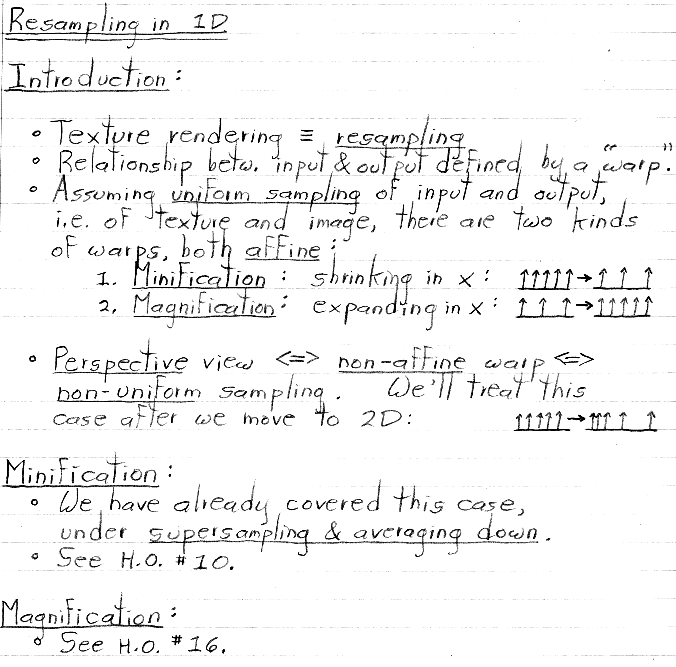 Resampling in 1D
Introduction:
° Texture rendering ≡ resampling
° Relationship betw. input & output defined by a "warp".
° Assuming uniform sampling of input and output,
i.e. of texture and image, there are two kinds
of warps, both affine:
1. Minification: shrinking in x: ↑↑↑↑↑→↑ ↑ ↑
2. Magnification: expanding in x: ↑ ↑ ↑→↑↑↑↑↑
° Perspective view <=> non-affine warp <=>
non-uniform sampling. We'll treat this
case after we move to 2D: ↑↑↑↑↑→↑↑↑ ↑ ↑
Minification:
° We have already covered this case,
under supersampling & averaging down.
° See H.O. #10.
Magnification:
° See H.O. #16.